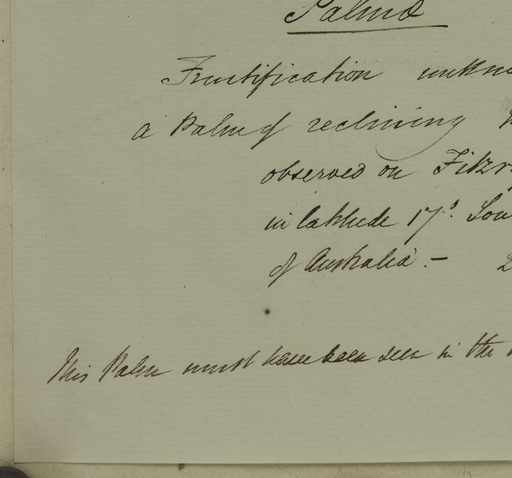 Palmæ
Fructification unkn
a Palm of reclining
observed on Fitzr
in latitude 17°. Sou
of Australia. —
This Palm must have been seen in the